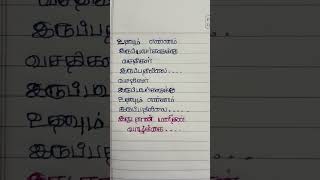 உதவும் எண்ணம்
இருப்பவர்களுக்கு
வசதிகள்
இருப்பதில்லை....
வசதிகள்
இருப்பவர்களுக்கு
உதவும் எண்ணம்
இருப்பதில்லை....
இது தான் மனித
வாழ்க்கை....